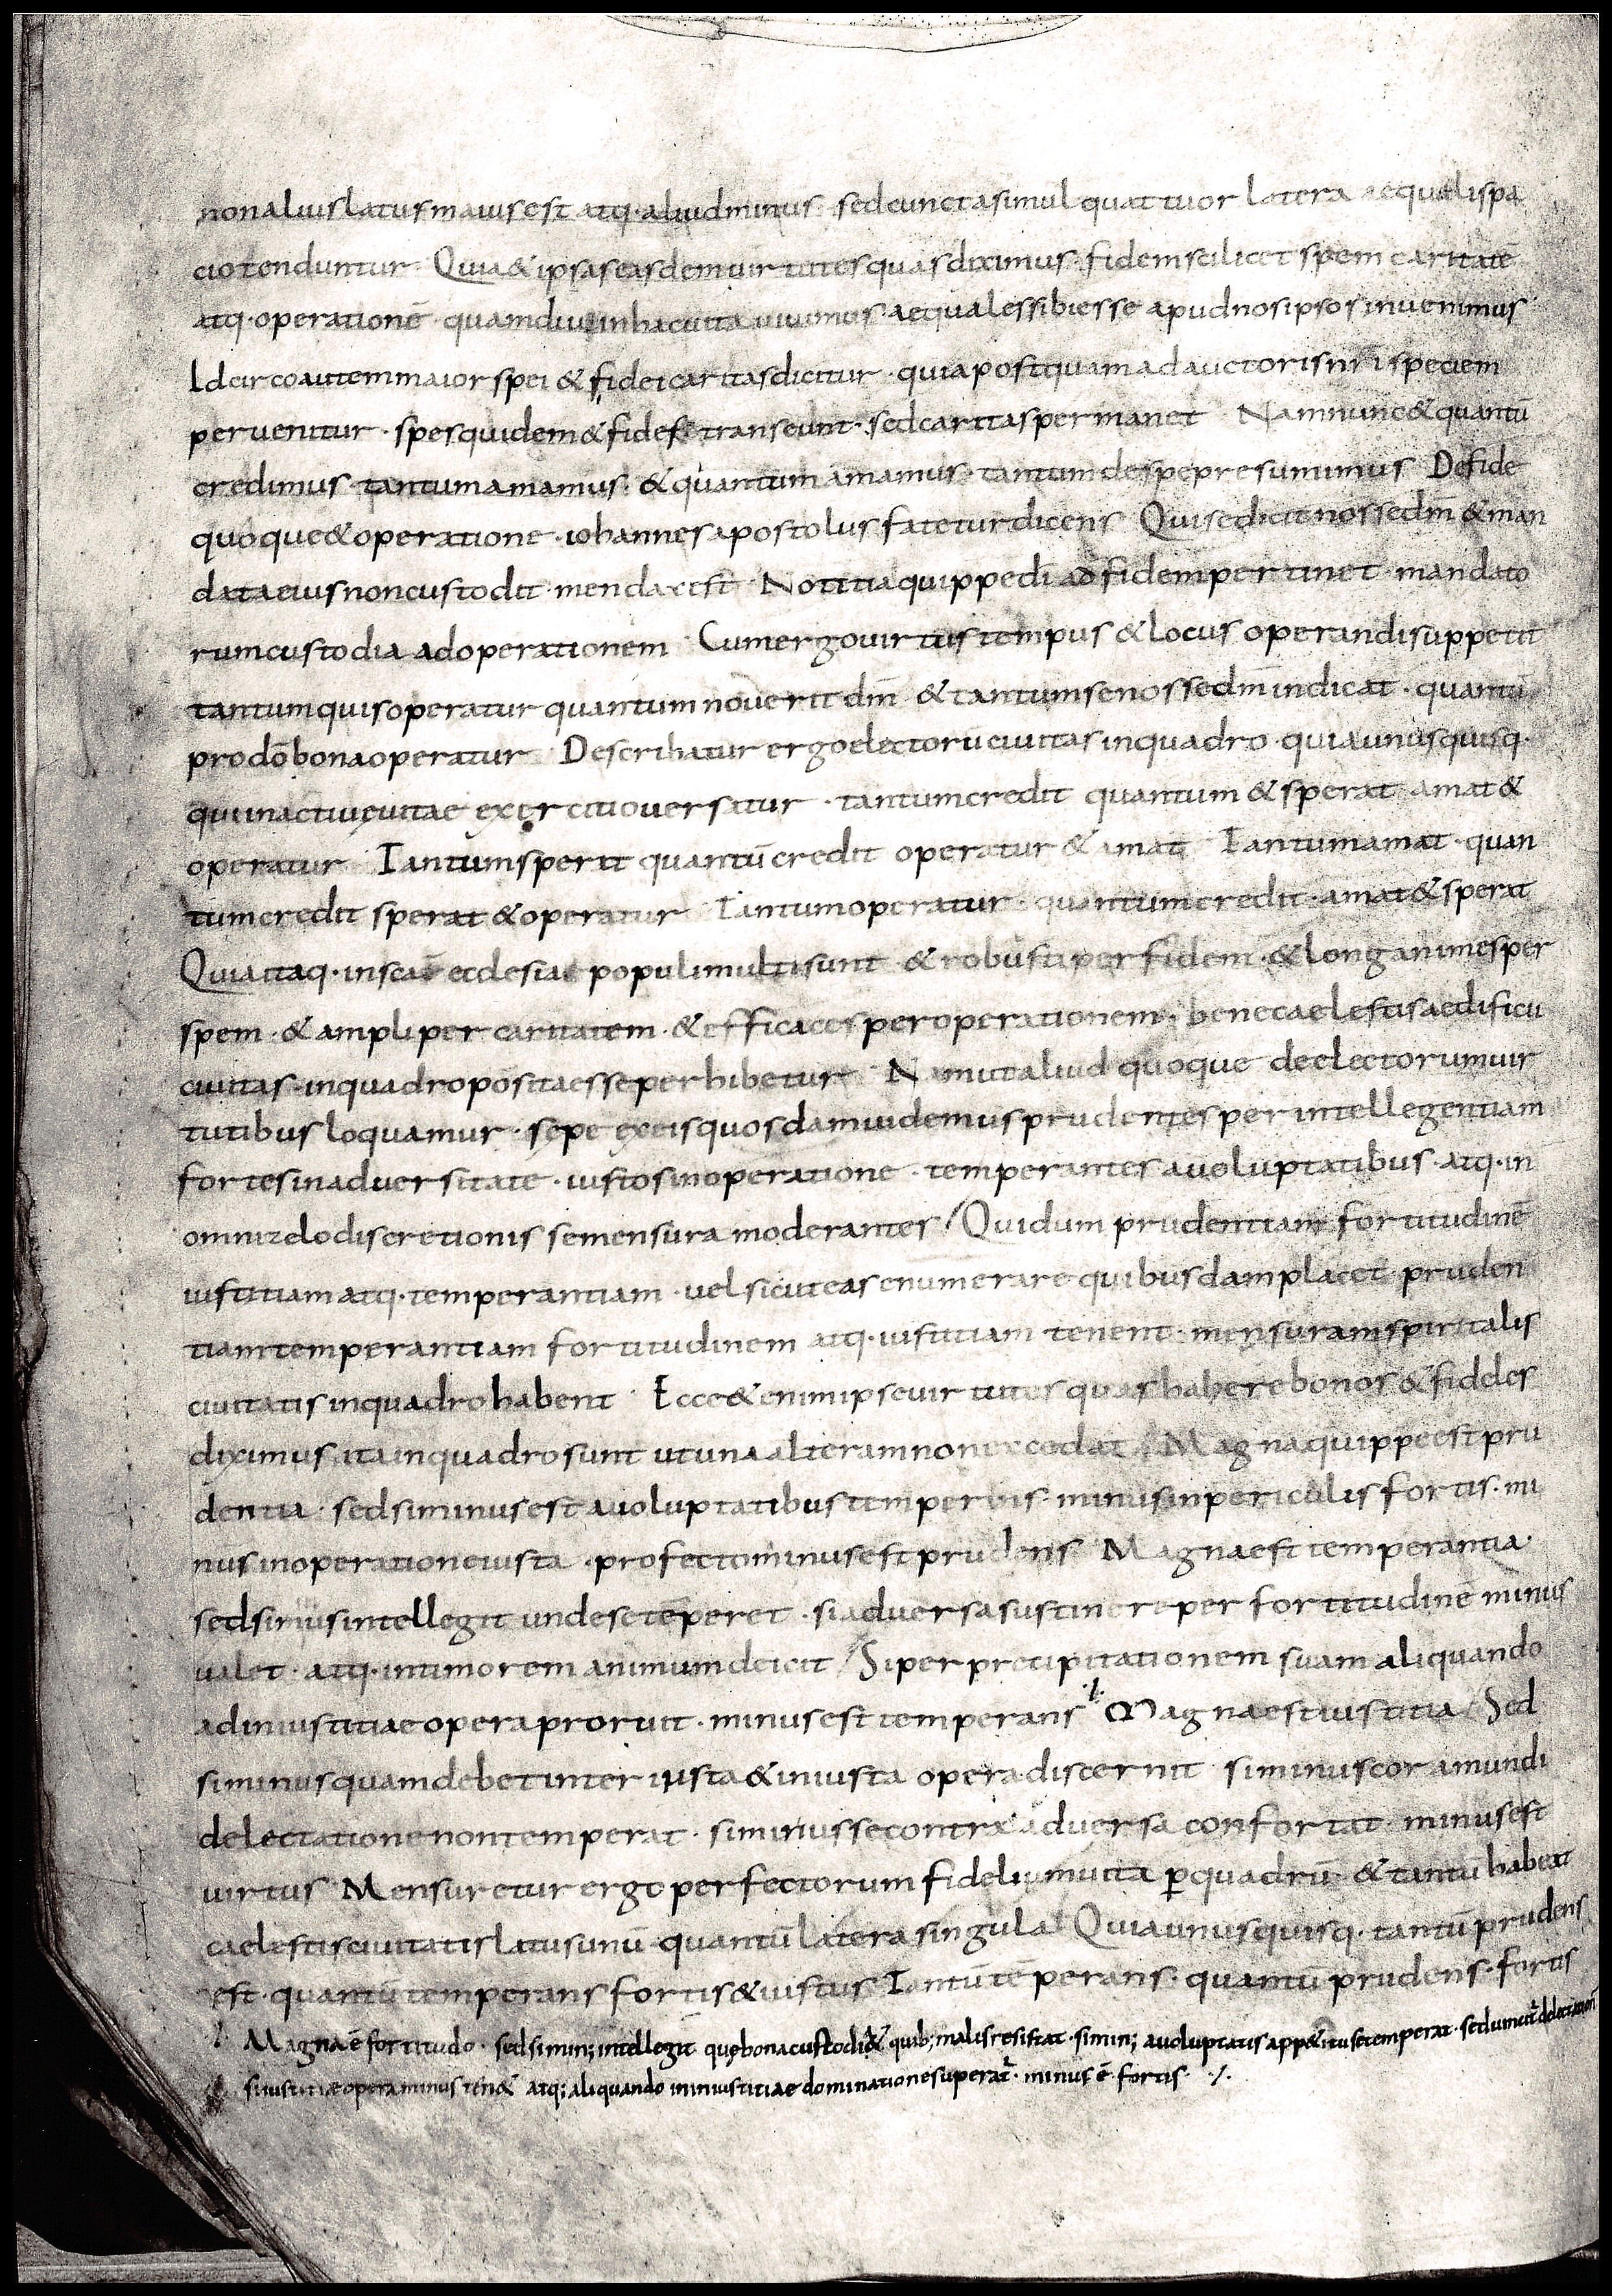 non aliuslatusmaiusest atq· aliudminus sedcunctasimul quattuor latera aequalispa
ciotenduntur· Quia&ipsaseasdemuirtutesquasdiximus· fidemscilicet spem caritatē
atq· operationē quamdiu inhacuitauiuimus aequalessibiesse apudnosipsosinuenimus
Idcircoautemmaiorspei & fideicaritasdicitur · quiapostquam adauctorisnr̄i speciem
peruenitur · spesquidem&fides transeunt· sedcaritaspermanet Namnunc&quantū
credimus tantumamamus· &quantum amamus· tantumdespepresumimus Defide
quoque&operatione · iohannesapostolusfateturdicens Quisedicitnossedm̄ &man
dataeiusnoncustodit mendaxest Notitiaquippedī adfidempertinet· mandato
rumcustodia adoperationem Cumergouirtustempus &locus operandisuppetit
tantumquisoperatur quantumnouerit dm̄ &tantumsenossedm̄indicat · quantū
prodōbonaoperatur Describatur ergoelectorūciuitasinquadro· quiaunusquisq·
quiinactiuęuitae exercitiouersatur · tantumcredit quantum &sperat amat&
operatur Tantumsperat quantūcredit operatur &amat Tantumamat · quan
tumcredit sperat &operatur Tantumoperatur· quantumcredit· amat&sperat
Quiaitaq· inscāe ecclesiae populimultisunt &robustiperfidem· &longanimesper
spem · &ampliper caritatem · &efficacesperoperationem· benecaelestisaedificii
ciuitas· inquadropositaesseperhibetur Namutaliud quoque deelectorumuir
tutibusloquamur · sępe exeisquosdamuidemusprudentesperintellegentiam
fortesinaduersitate · iustosinoperatione · temperantesauoluptatibus· atq· in
omnizelodiscretionis semensura moderantes / Quidum prudentiam fortitudinē
iustitiamatq· temperantiam · uel sicuteasenumerare quibusdamplacet· pruden
tiamtemperantiam fortitudinem atq· iustitiam tenent· mensuramspiritalis
ciuitatis inquadrohabent Ecce&enimipseuirtutes quashaberebonos&fideles
diximus· itainquadrosunt utunaalteramnonexcedat Magnaquippeestpru
dentia · sedsiminusest auoluptatibustemperans· minusinpericulisfortis· mi
nusinoperationeiusta · profectominusestprudens Magnaesttemperantia·
sedsiminusintellegit undesetēperet · siaduersasustinereper fortitudinē minus
ualet · atq· intimorem animumdeicit / Siper precipitationem suam aliquando
adiniustitiaeopera proruit · minusest temperans ·/. Magnaestiustitia / Sed
siminusquamdebetinter iusta&iniusta operadiscernit siminuscoramundi
delectationenontemperat · siminussecontra aduersa confortat· minusest
uirtus Mensuretur ergo perfectorum fideliumuita p̄quadrū · &tantū habeat
caelestisciuitatislatusunū quantū laterasingula Quiaunusquisq· tantū prudens
est· quantū temperans fortis&iustus Tantū tēperans· quantū prudens· fortis
·/. Magnaē fortitudo· sedsimin; intellegit quębonacustodi& quib; malisresistat· simin; auoluptatis app&itusetemperat· sed
siiustitiae operaminus ten& atq; aliquando ininiustitiaedominationesuperat᷑· minus ē fortis· ·/.